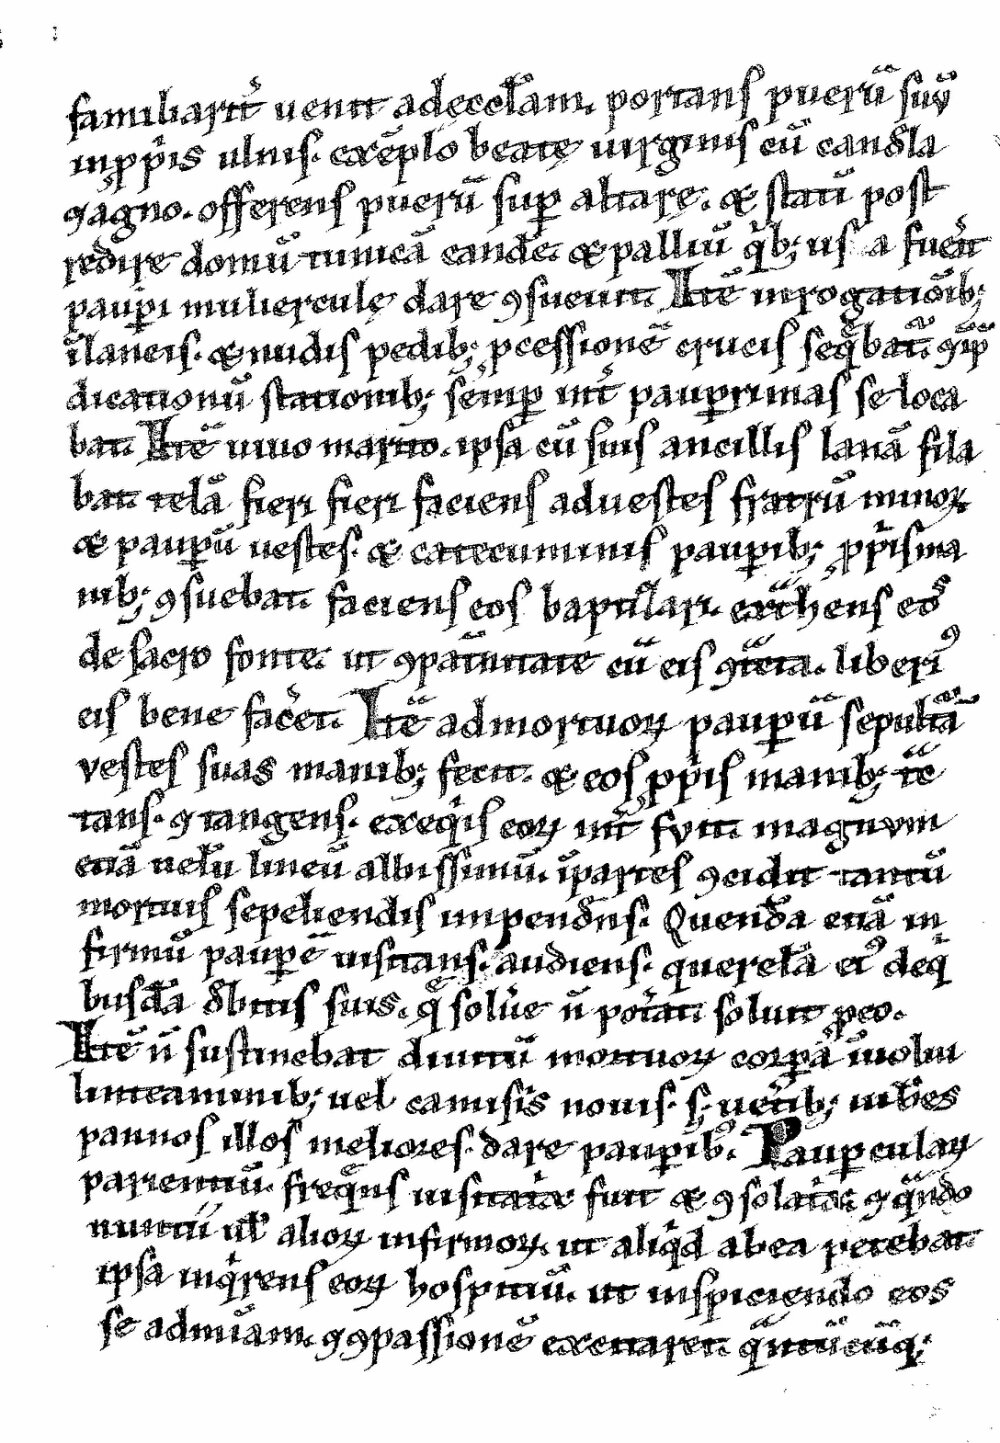 familiarit᷑ uenit ad eccl̄am. portans puerū suū
in ꝓp̄is ulnis. exēplo beatę uirginis cū candela
⁊ agno. offerens puerū sup̱ altare. ⁊ statī post
redire domū tunicā eandē. ⁊ palliū q̄ib; us a fuerit
paup̱i mulierculę dare ꝯsueuit. Itē in rogationib;
ī laneis. ⁊ nudis pedib; ꝓcessionē crucis seq̄bat̄. ⁊ ī p̄
dicationū stationib; semp̱ int̄ paup̱rimas se loca
bat. Itē uiuo marito. ipsa cū suis ancillis lanā fila
bat telā fieri fieri faciens ad uestes fratrū minoꝝ
⁊ paup̱ū uestes. ⁊ catecuminis paup̱ib; ꝓp̄is ma
nib; ꝯsuebat. faciens eos baptizari. ext̄hens eos
de sacro fonte. ut ꝯpat̄nitate cū eis ꝯt̄cta. liberi᷒
eis bene facēt. Itē ad mortuoꝝ paup̱ū sepult̄ā
uestes suas manib; fecit. ⁊ eos ꝓp̄is manib; t̄c
tans. ꝯtangens. exeq̄is eoꝝ int̄fuit. magnum
etiā uelū lineū albissimū. ī partes ꝯcidit tantū
mortuis sepeliendis impendēs. Quendā etiā in
firmū paup̱ē uisitans. audiens. querelā ei᷒ de q̄i
busdā debitis suis. q̄ soluē n̄ pot̄at. soluit ꝓ eo.
Itē n̄ sustinebat diuitū mortuoꝝ corp̱a īuolui
linteaminib; uel camisis nouis. s; uet̄ib; iubēs
pannos illos meliores. dare paup̱ib᷒. Paup̱culaꝝ
parientiū. freq̄ns uisitatix fuit ⁊ ꝯsolatix ⁊ q̄ndo
nuntii ul̄ alioꝝ infirmoꝝ. ut aliq̄d ab ea petebat.
ipsa inq̄rens eoꝝ hospitiū. ut inspiciendo eos
se ad mīam. ⁊ ꝯpassionē excitaret. q̄ntūcūq;